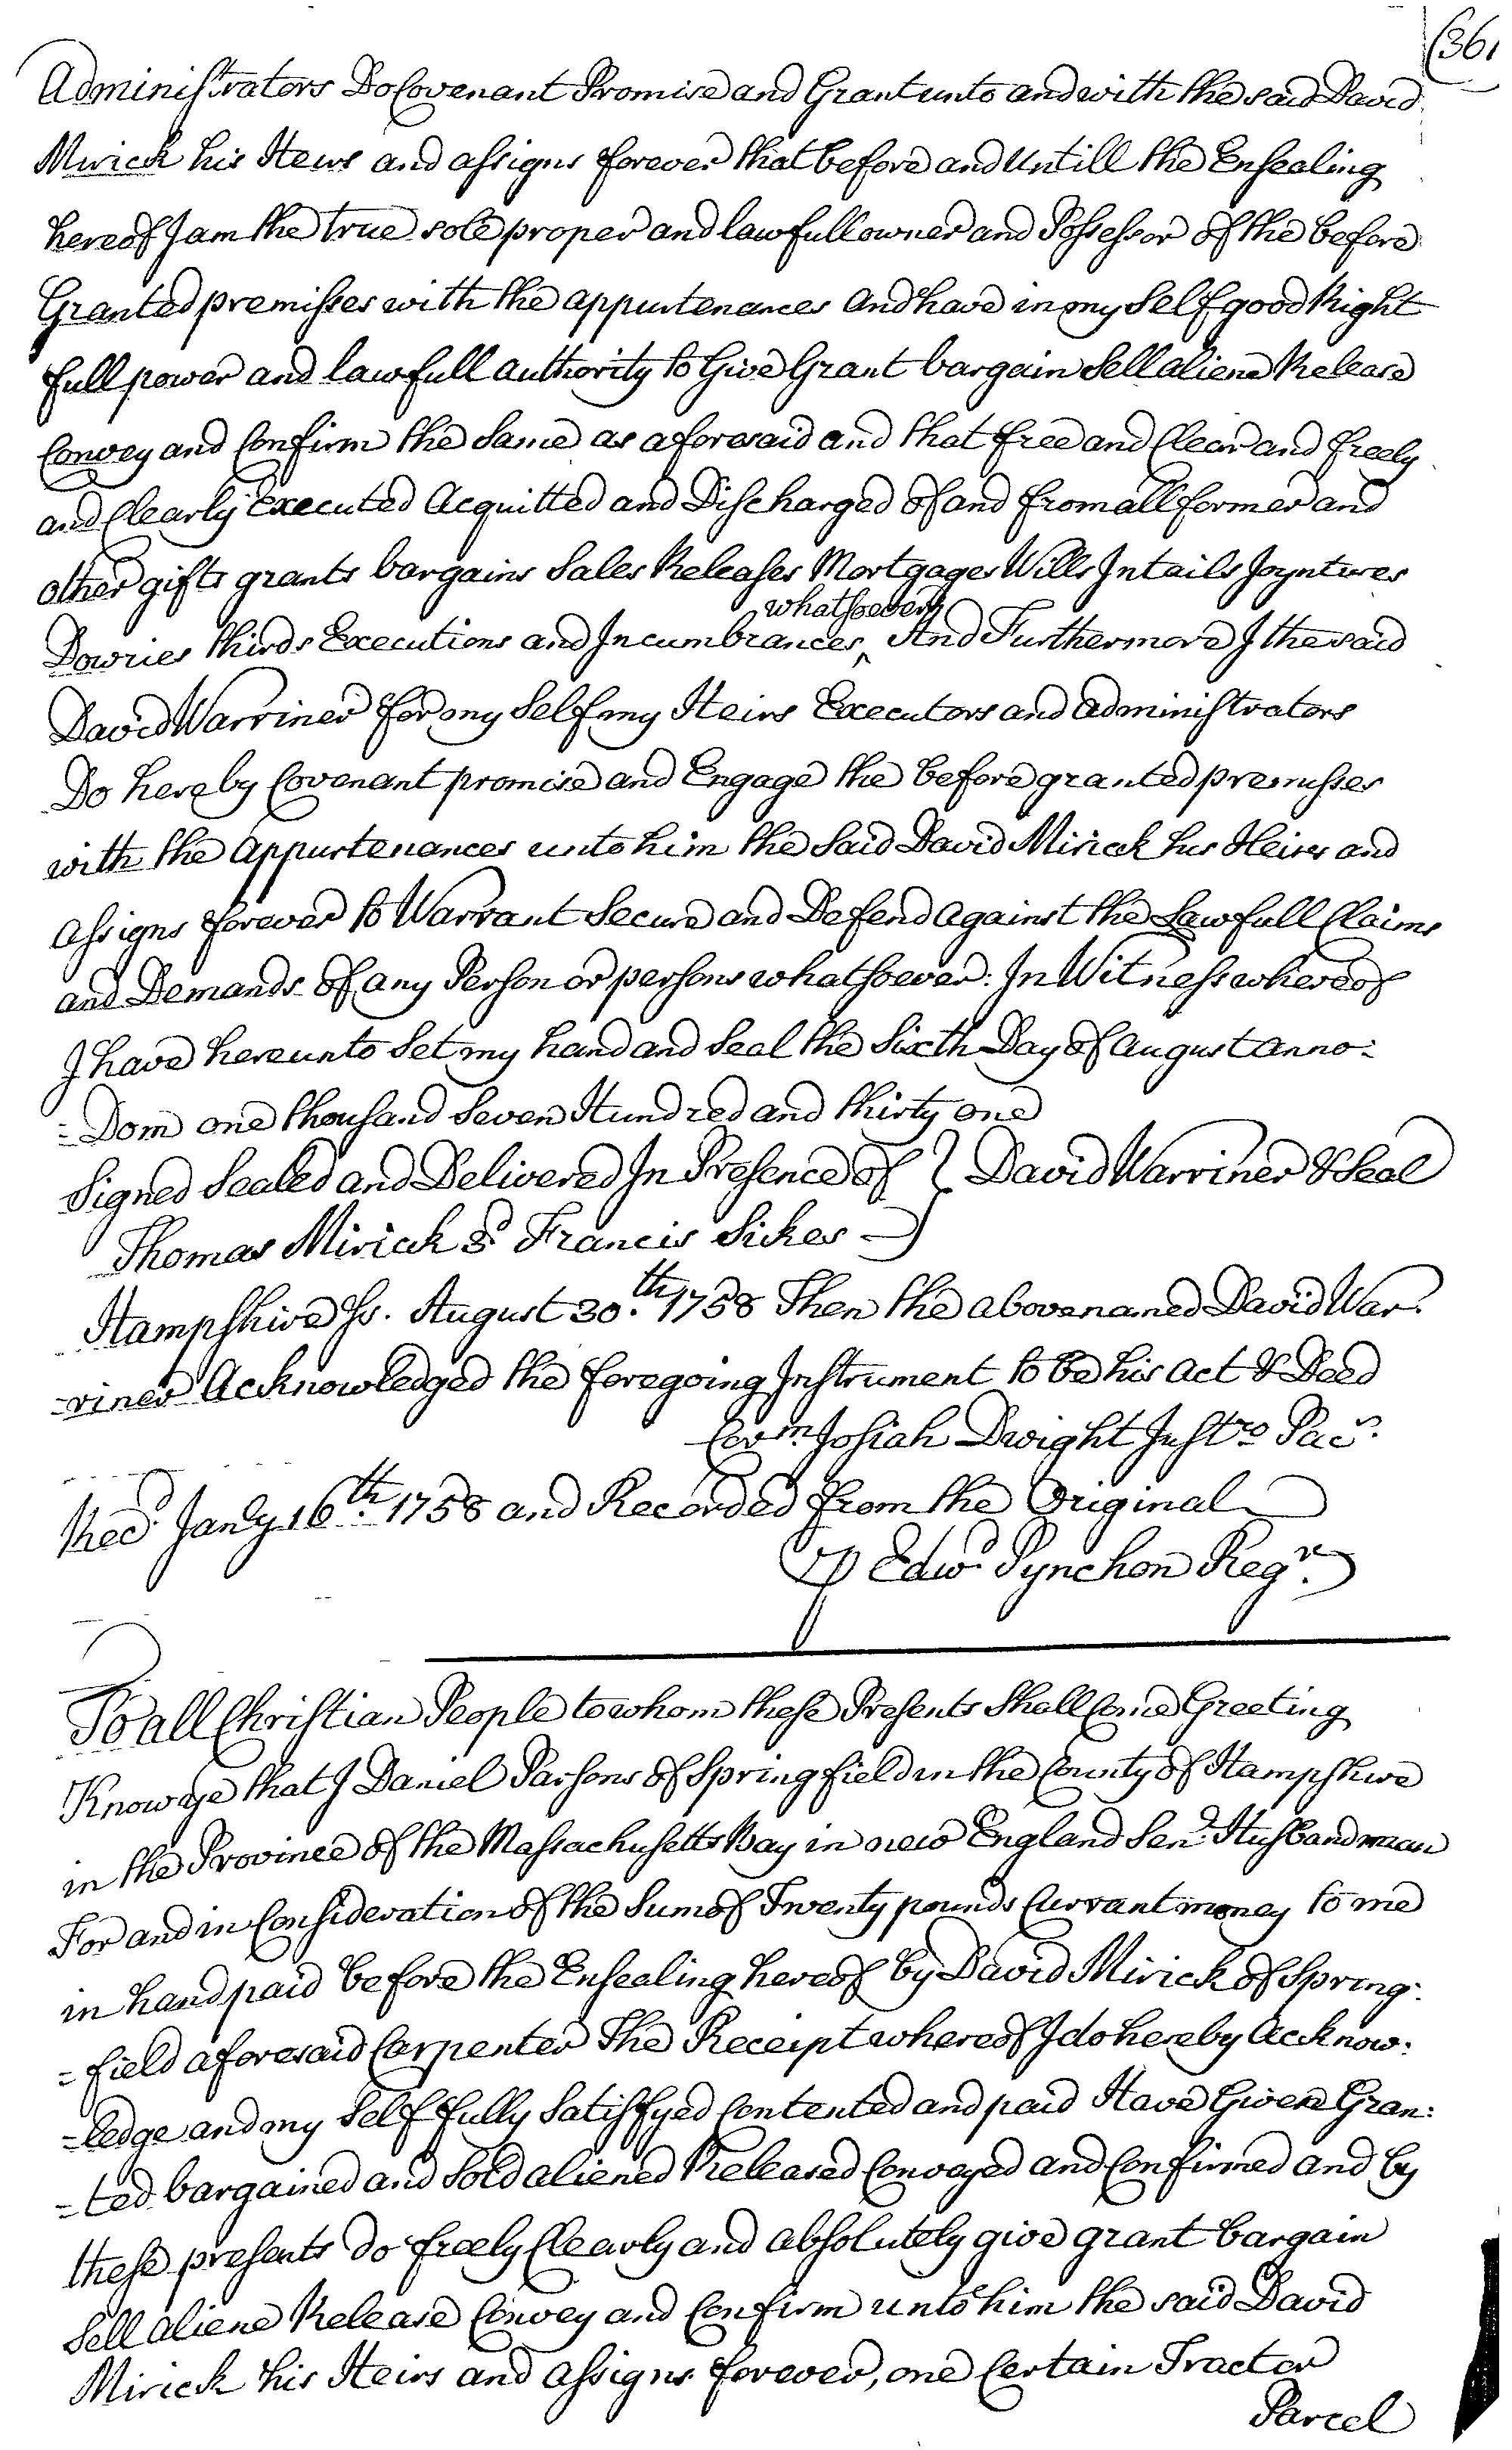 (361
Administrators Do Covenant Promise and Grant unto and with the said David
Mirick his Heirs and assigns forever that before and Untill the Ensealing
hereof I am the true sole proper and lawfull owner and Possessor of the before
Granted premisses with the appurtenances and have in my Self good Right
full power and lawfull authority to Give Grant bargain Sell aliene Release
Convey and Confirm the Same as aforesaid and that free and Clear and freely
and Clearly Executed Acquitted and Discharged of and from all former and
other gifts grants bargains Sales Releases Mortgages Wills Intails Joyntures
Dowries thirds Executions and Incumbrances ‸ whatsoever And Furthermore I the said
David Warriner for my Self my Heirs Executors and administrators
Do hereby Covenant promise and Engage the before granted premisses
with the Appurtenances unto him the Said David Mirick his Heirs and
assigns forever to Warrant Secure and Defend against the Lawfull Claims
and Demands of any Person or persons whatsoever: In Witness whereof
I have hereunto Set my hand and Seal the Sixth Day of August anno:
=Dom one thousand Seven Hundred and thirty one
Signed Sealed and Delivered In Presence of } David Warriner & Seal
Thomas Mirick Francis Sikes
Hampshire Ss. August 30.th 1758 Then the above named David War:
=riner Acknowledged the foregoing Instrument to be his act & Deed
Corm. Josiah Dwight Justro Pacs.
Recd. Janly 16th. 1758 and Recorded from the Original
P Edwd. Pynchon Regr.
To all Christian People to whom these Presents Shall Come Greeting
Know ye that I Daniel Parsons of Springfield in the County of Hampshire
in the Province of the Massachusetts Bay in new England Senr. Husbandman
For and in Consideration of the Sum of Twenty pounds Currant money to me
in hand paid before the Ensealing hereof by David Mirick of Spring:
=field aforesaid Carpenter the Receipt whereof I do hereby Acknow:
=ledge and my Self fully Satisfyed Contented and paid Have Given Gran:
=ted bargained and Sold aliened Released Conveyed and Confirmed and by
these presents do freely Clearly and absolutely give grant bargain
Sell aliene Release Convey and Confirm unto him the said David
Mirick his Heirs and assigns forever, one Certain Tract or
Parcel